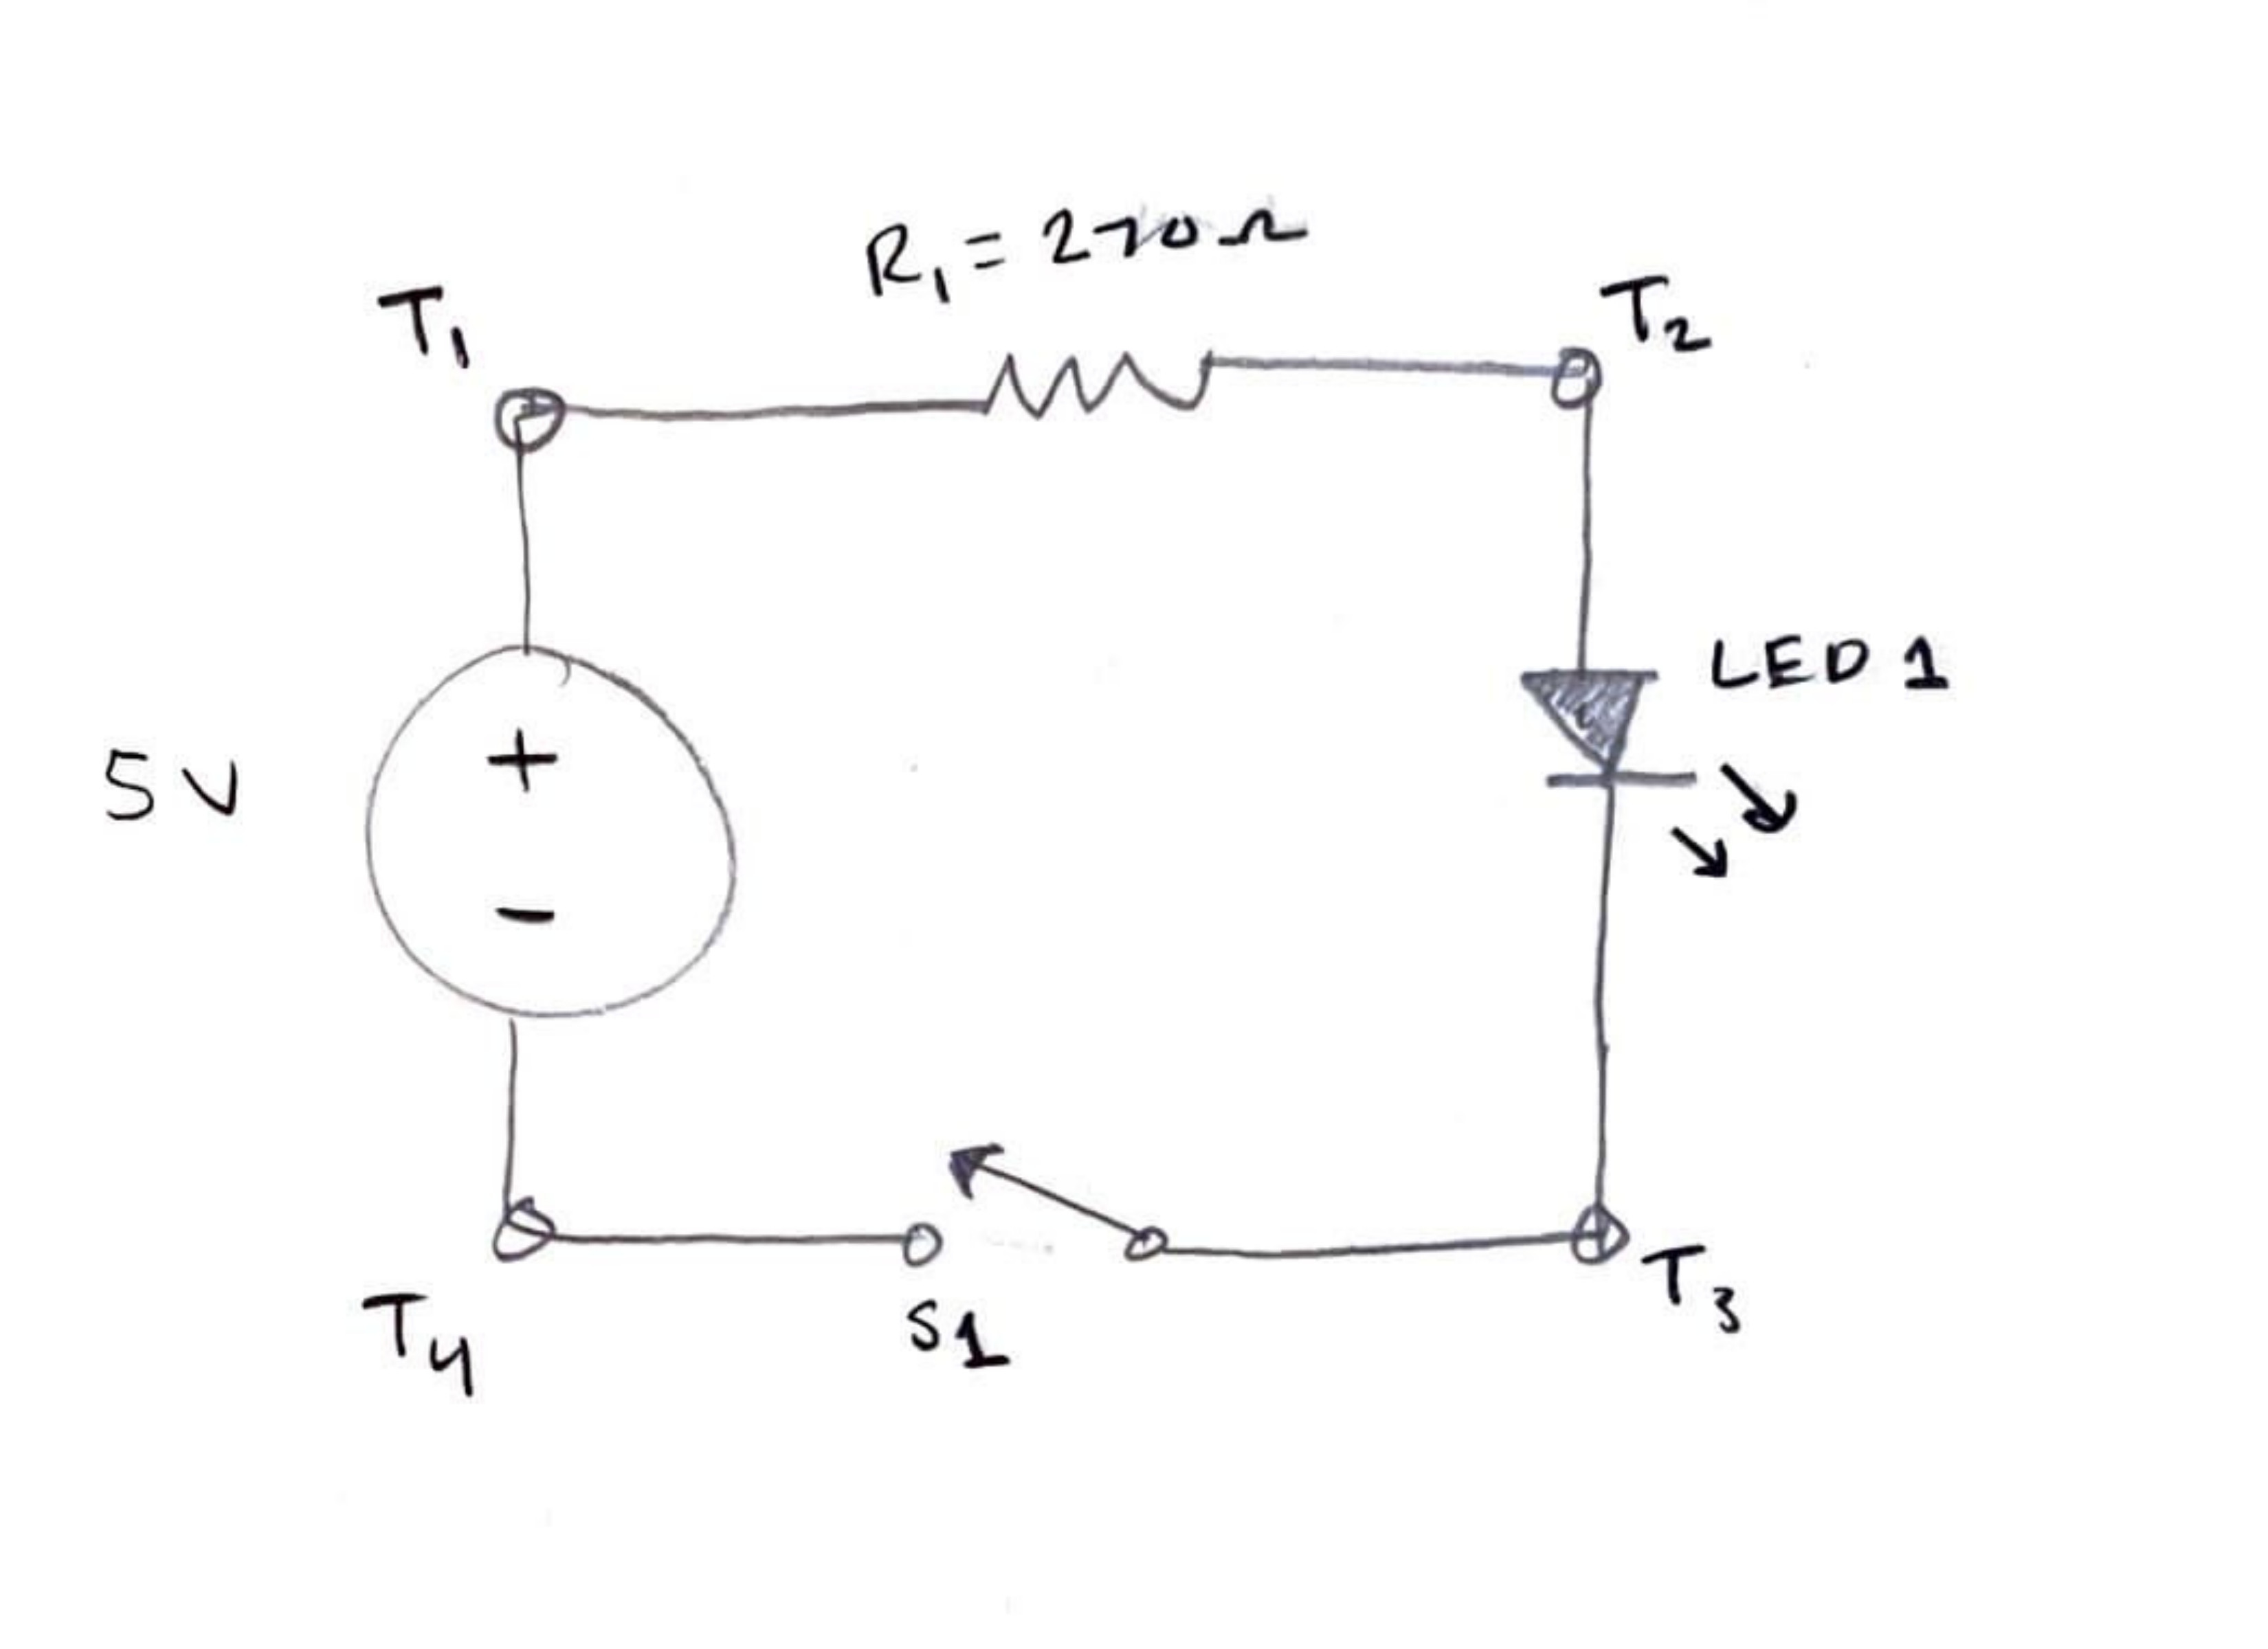 R₁ = 270Ω
T₁
T₂
LED 1
5V
+
-
T₄
S1
T₃